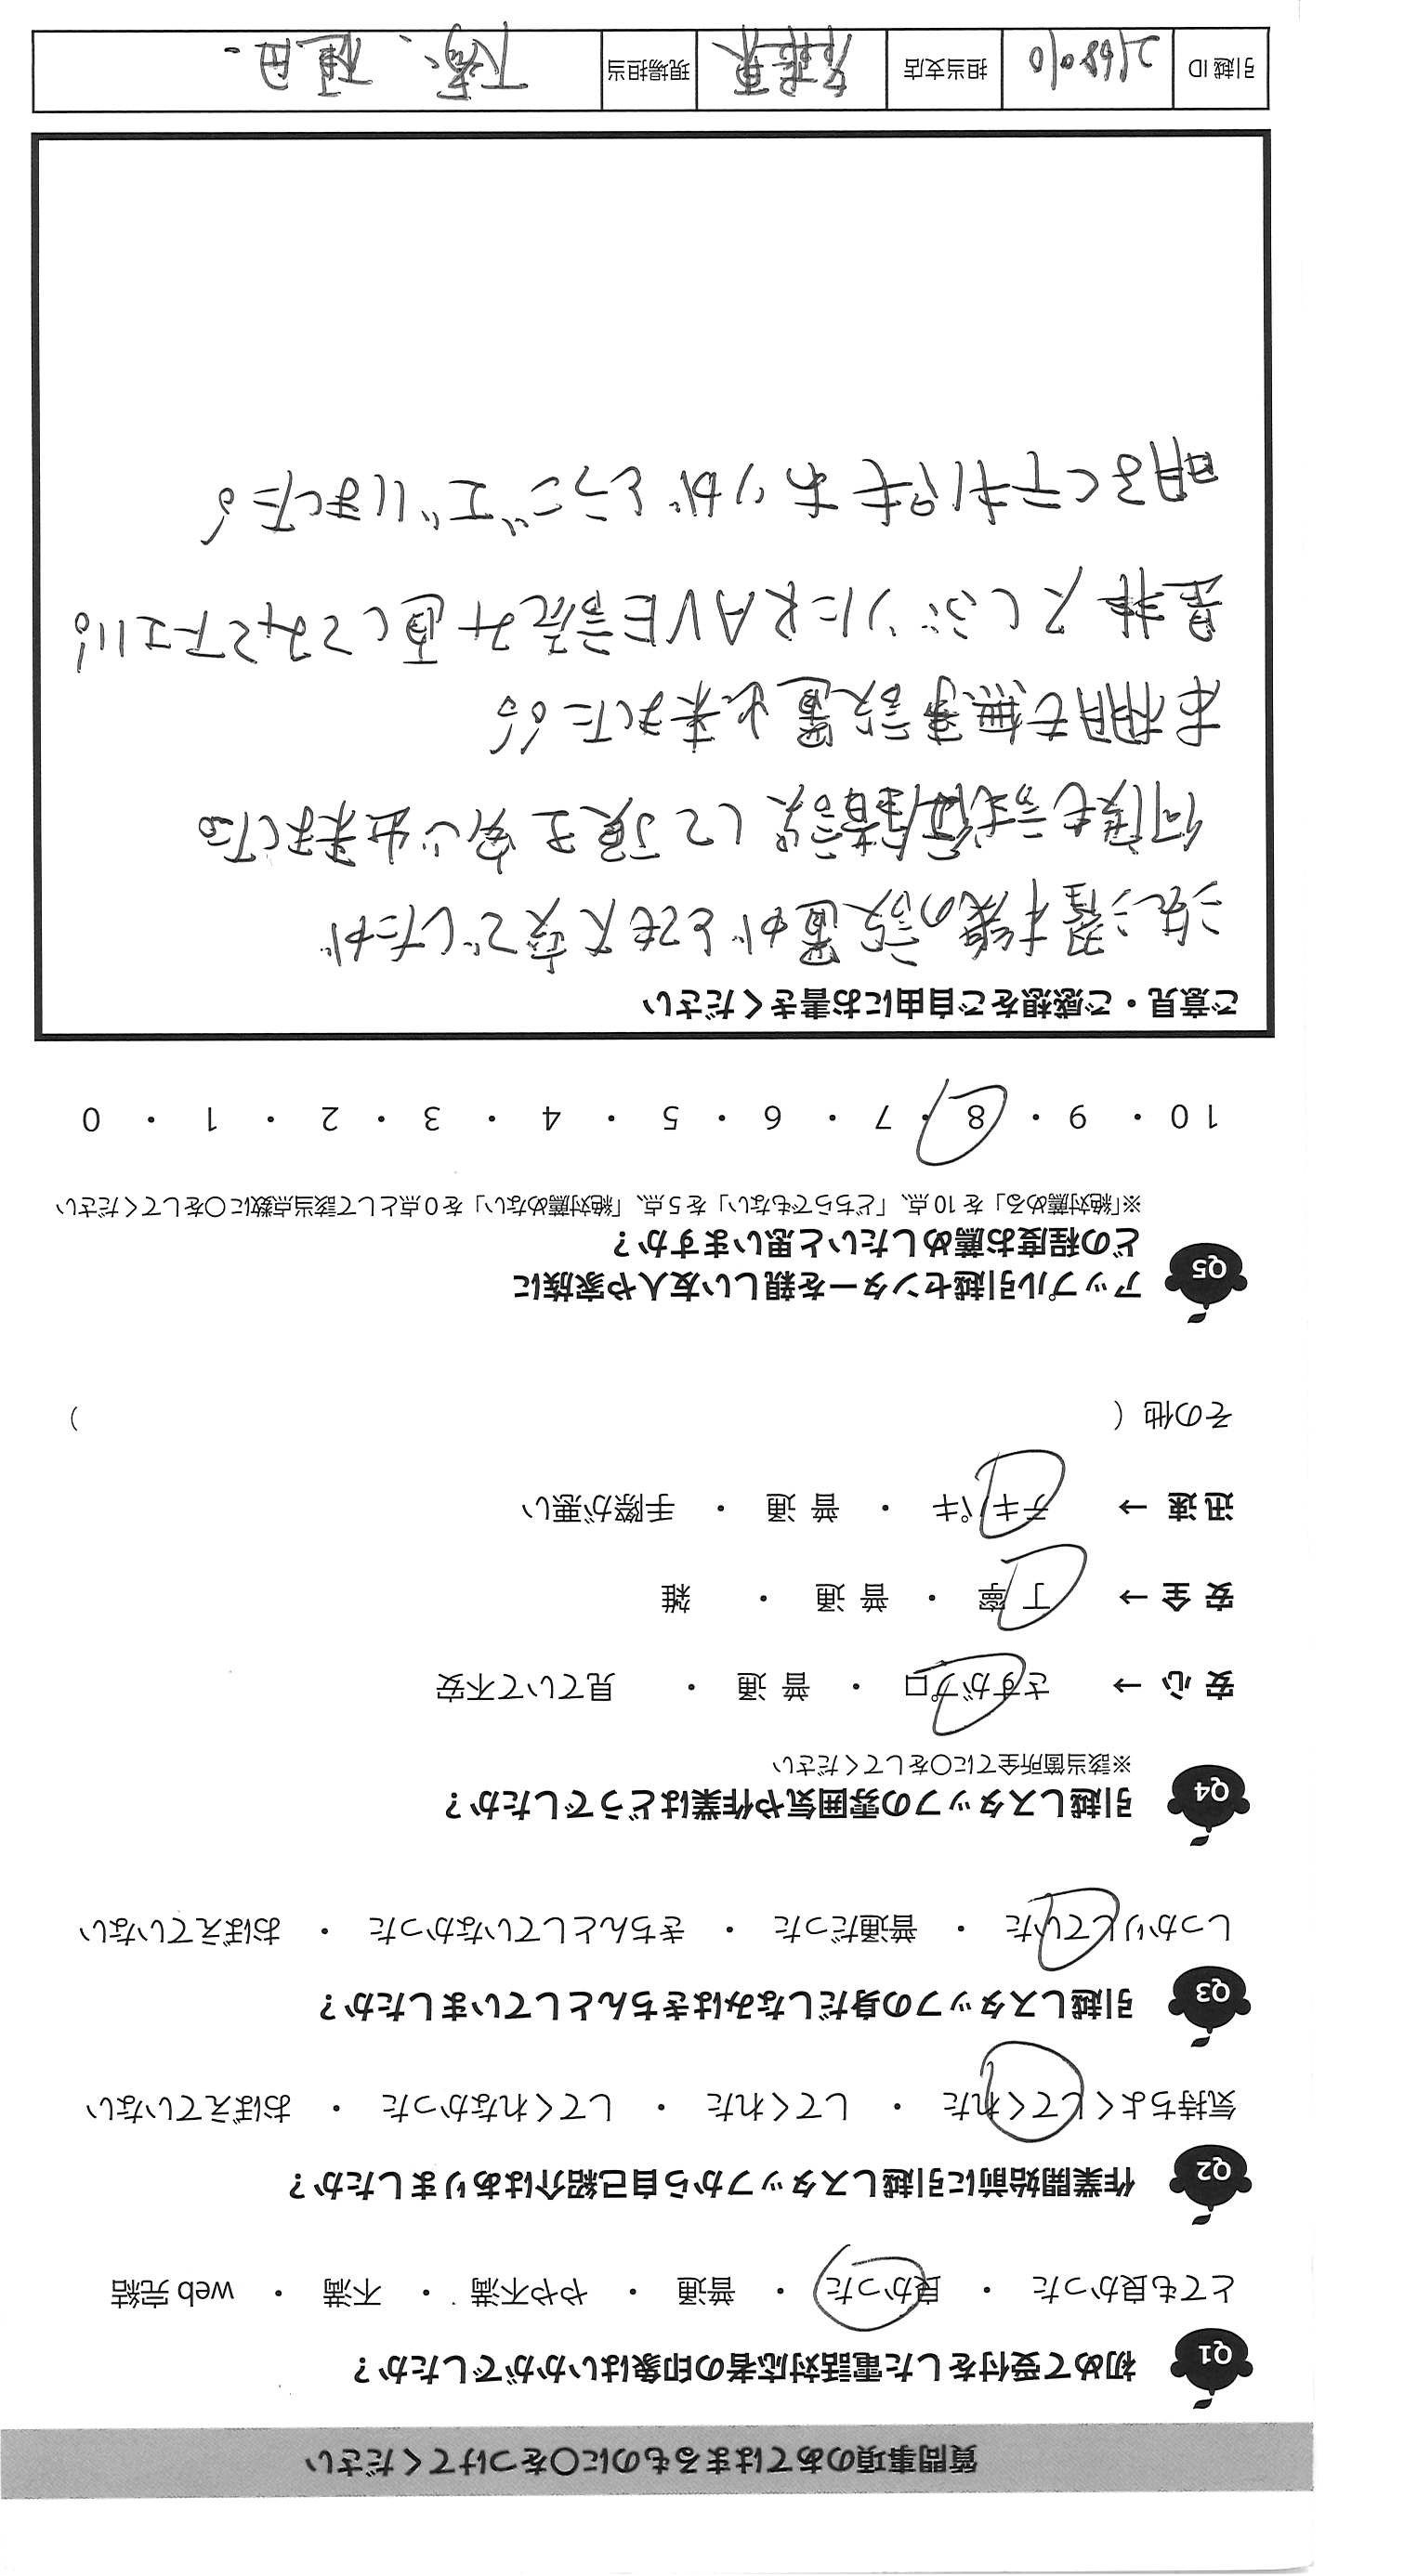 質問事項のあてはまるものに〇をつけてください
Q1 初めて受付をした電話対応者の印象はいかがでしたか？
とても良かった ・ 良かった ・ 普通 ・ やや不満 ・ 不満 ・ web 完結
Q2 作業開始前に引越しスタッフから自己紹介はありましたか？
気持ちよくしてくれた ・ してくれた ・ してくれなかった ・ おぼえていない
Q3 引越しスタッフの身だしなみはきちんとしていましたか？
しっかりしていた ・ 普通だった ・ きちんとしていなかった ・ おぼえていない
Q4 引越しスタッフの雰囲気や作業はどうでしたか？
※該当箇所全てに〇をしてください
安 心 → さすがプロ ・ 普 通 ・ 見ていて不安
安 全 → 丁 寧 ・ 普 通 ・ 雑
迅 速 → テキパキ ・ 普 通 ・ 手際が悪い
その他（ ）
Q5 アップル引越センターを親しい友人や家族に
どの程度お薦めしたいと思いますか？
※「絶対薦める」を 10 点、「どちらでもない」を 5 点、「絶対薦めない」を 0 点として該当点数に〇をしてください
10 ・ 9 ・ 8 ・ 7 ・ 6 ・ 5 ・ 4 ・ 3 ・ 2 ・ 1 ・ 0
ご意見・ご感想をご自由にお書きください
洗濯機の設置がとても大変でしたが
何度も試行錯誤して頂き安心出来ました。
本棚も無事設置出来ました。
是非 久しぶりにRAVE読み直してみて下さい!
明るく子れ性も ありがとうございました。
引越 ID 担当支店 現場担当